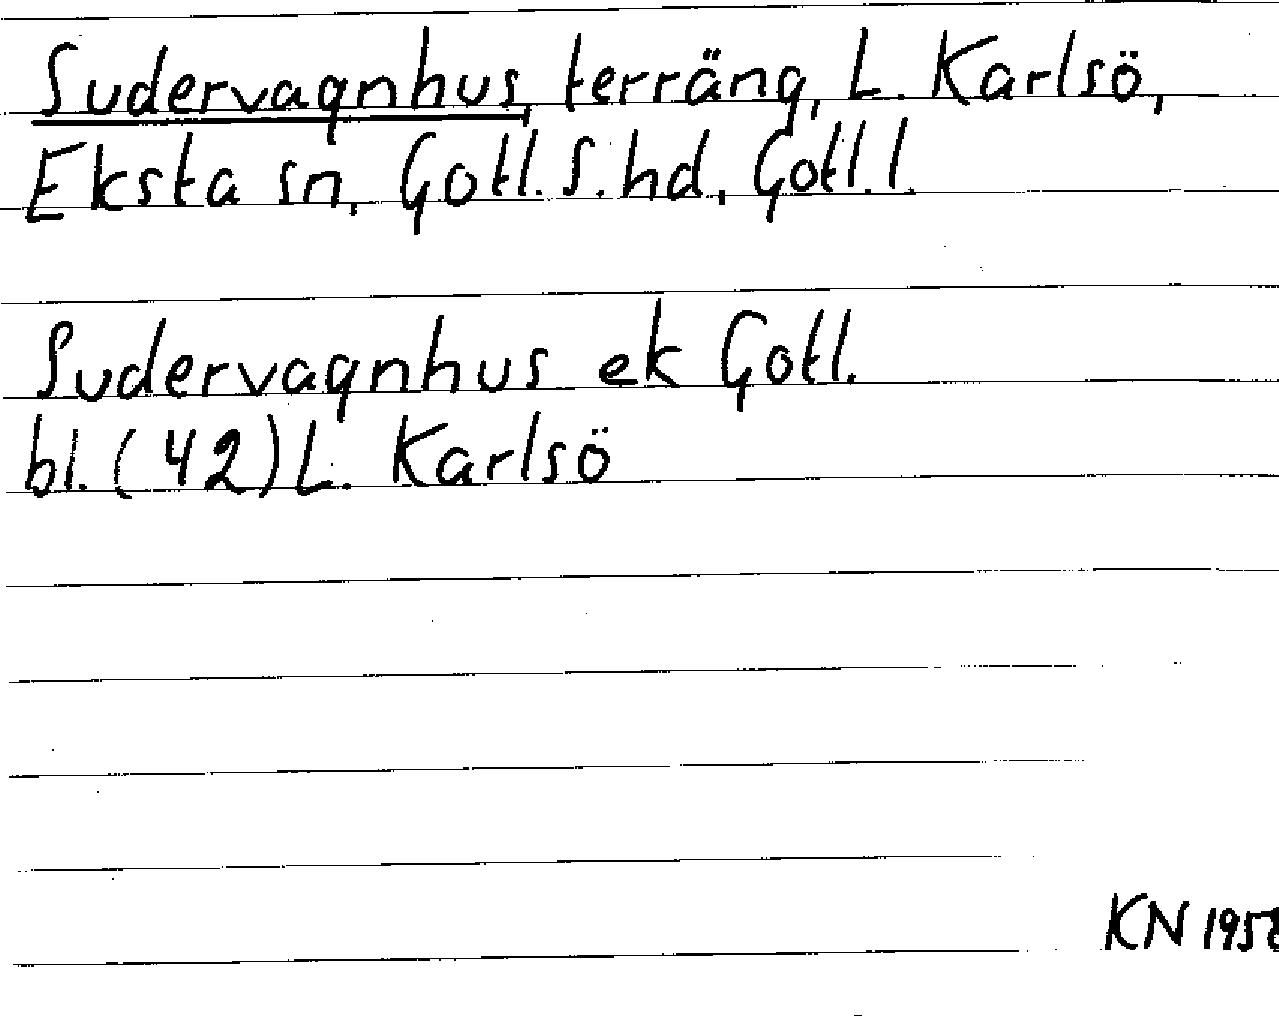 Sudervagnhus, terräng, L. Karlsö,
Eksta sn, Gotl. S. hd, Gotl. l.
Sudervagnhus ek Gotl.
bl. (42) L. Karlsö
KN